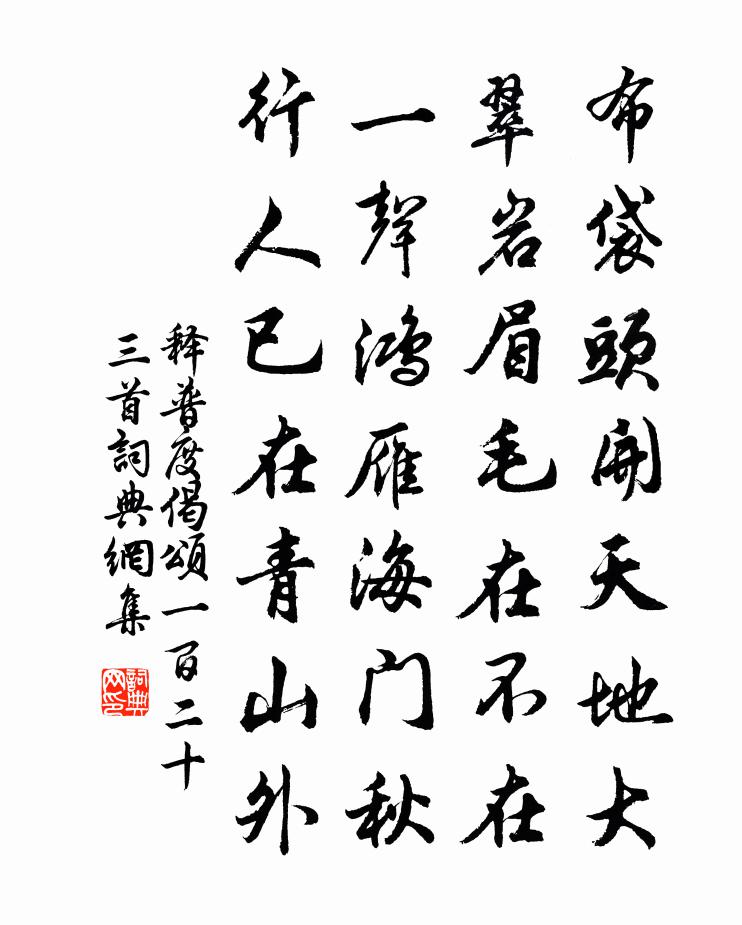 布袋頭開天地大
翠岩眉毛在不在
一聲鴻雁海门秋
行人已在青山外
释普度偈頌一百二十
三首詞典網集
詞典网印